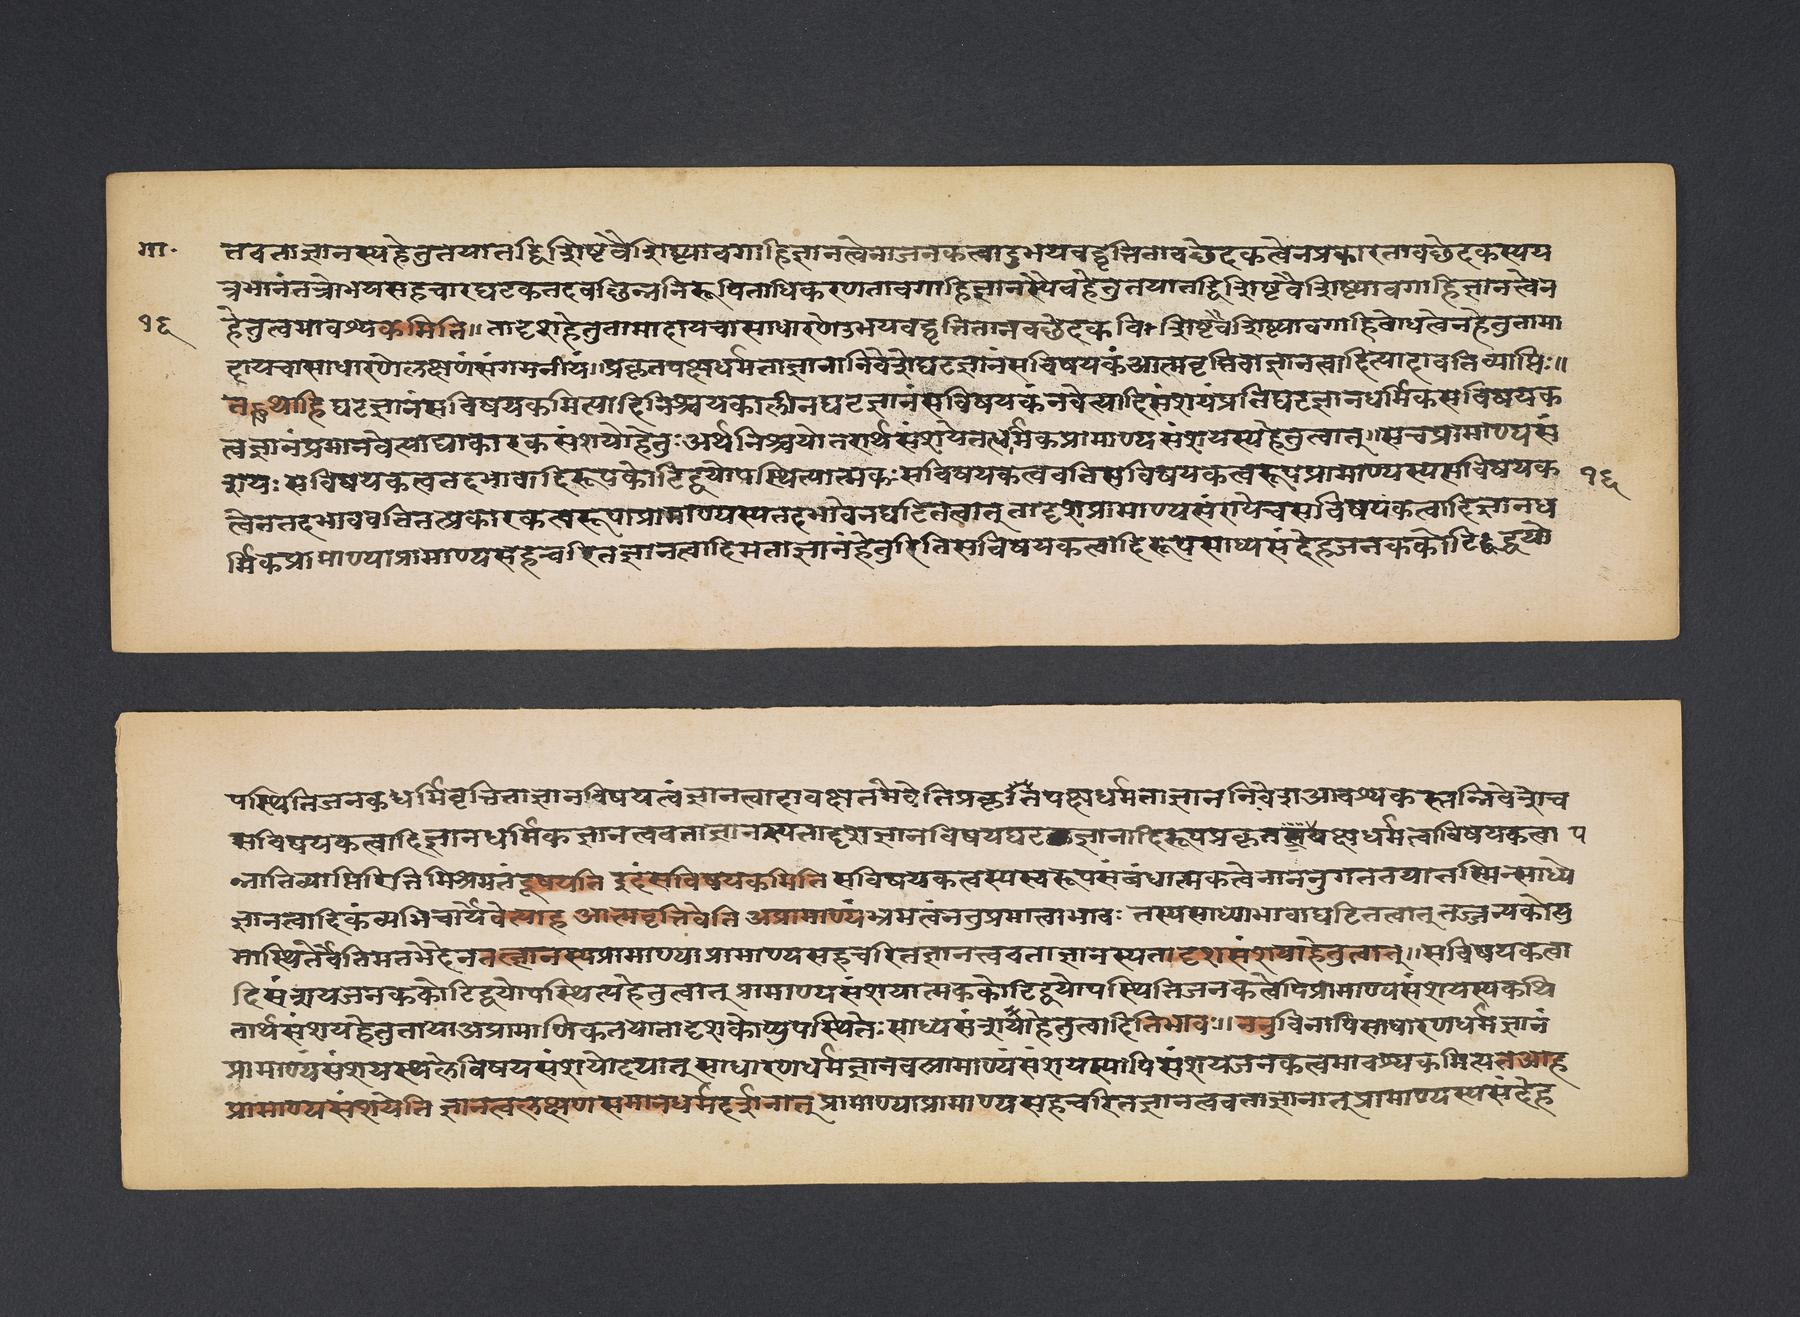 गा॰
तवताज्ञानस्यहेतुतयातद्विशिष्टवैशिष्ट्यावगाहिज्ञानत्वेनाजनकत्वादुभयवद्वृत्तितावछेदकत्वेनप्रकारतावछेदकस्यय
त्रभानंतत्रोभयसहचारघटकतदवछिन्ननिरूपिताधिकरणतावगाहिज्ञानस्यैवहेतुतयातद्विशिष्टवैशिष्ट्यावगाहिज्ञानत्वेन
१६
हेतुत्वमावश्यकमिति॥ तादृशहेतुतामादायचासाधारणेउभयवद्वृत्तितानवछेदक विशिष्टवैशिष्ट्यावगाहिबोधत्वेनहेतुतामा
दायचासाधारणेलक्षणंसंगमनीयं॥प्रकृतपक्षधर्मताज्ञानानिवेशेघटज्ञानंसविषयकंआत्मवृत्तिवाज्ञानत्वादित्यादावतिव्याप्तिः॥
तथाहि घटज्ञानंसविषयकमित्यादिनिश्चयकालीनघटज्ञानंसविषयकंनवेत्यादिसंशयंप्रतिघटज्ञानधर्मिकसविषयक
त्वज्ञानंप्रमानवेत्याद्याकारकसंशयोहेतुः अर्थनिश्चयोत्तरार्थसंशयेतद्धर्मिकप्रामाण्यसंशयस्यहेतुत्वात्॥सचप्रामाण्यसं
शयः सविषयकत्वतदभावादिरूपकोटिद्वयोपस्थित्यात्मकः सविषयकत्ववतिसविषयकत्वरूपप्रामाण्यस्यसविषयक
१६
त्वेनतदभाववतितत्प्रकारकत्वरूपाप्रामाण्यस्यतदभावेनघटितत्वात् तादृशप्रामाण्यसंशयेचसविषयकत्वादिज्ञानध
र्मिकप्रामाण्याप्रामाण्यसहचरितज्ञानत्वादिमत्ताज्ञानंहेतुरितिसविषयकत्वादिरूपसाध्यसंदेहजनककोटिद्वयो
पस्थितिजनकधर्मिवृत्तिताज्ञानविषयत्वंज्ञानत्वादावक्षतमेवेतिप्रकृतपक्षधर्मताज्ञाननिवेशआवश्यकस्तन्निवेशेच
सविषयकत्वादिज्ञानधर्मिकज्ञानत्ववत्ताज्ञानस्यतादृशज्ञानविषयघटज्ञानादिरूपप्रकृतपक्षधर्मत्वाविषयकत्वा प
न्नातिव्याप्तिरिति मिश्रमतंदूषयति इदंसविषयकमिति सविषयकत्वस्यस्वरूपसंबंधात्मकत्वेनाननुगततयातस्मिन्साध्ये
ज्ञानत्वादिकंव्यभिचार्येवेत्याह आत्मवृत्तिवेति अप्रामाण्यंभ्रमत्वंनतुप्रमात्वाभावः तस्यसाध्याभावाघटितत्वात् तज्जन्यकोत्यु
मास्थितेर्वेतिमतभेदेन तत्ज्ञानस्यप्रामाण्याप्रामाण्यसहचरितज्ञानत्ववत्ताज्ञानस्यतादृशसंशयाहेतुत्वात्॥सविषयकत्वा
दिसंशयजनककोटिद्वयोपस्थित्यहेतुत्वात् प्रामाण्यसंशयात्मककोटिद्वयोपस्थितिजनकत्वेपिप्रामाण्यसंशयस्यकथि
तार्थसंशयहेतुतायाअप्रामाणिकतयातादृशकोट्युपस्थितेः साध्यसंशयाहेतुत्वादितिभावः॥ ननुविनापिसाधारणधर्मज्ञानं
प्रामाण्यसंशयस्थलेविषयसंशयोदयात् साधारणधर्मज्ञानवत्प्रामाण्यसंशयस्यापिसंशयजनकत्वमावश्यकमित्यतआह
प्रामाण्यसंशयेति ज्ञानत्वलक्षणसमानधर्मदर्शनात् प्रामाण्याप्रामाण्यसहचरितज्ञानत्ववत्ताज्ञानात्प्रामाण्यस्यसंदेह